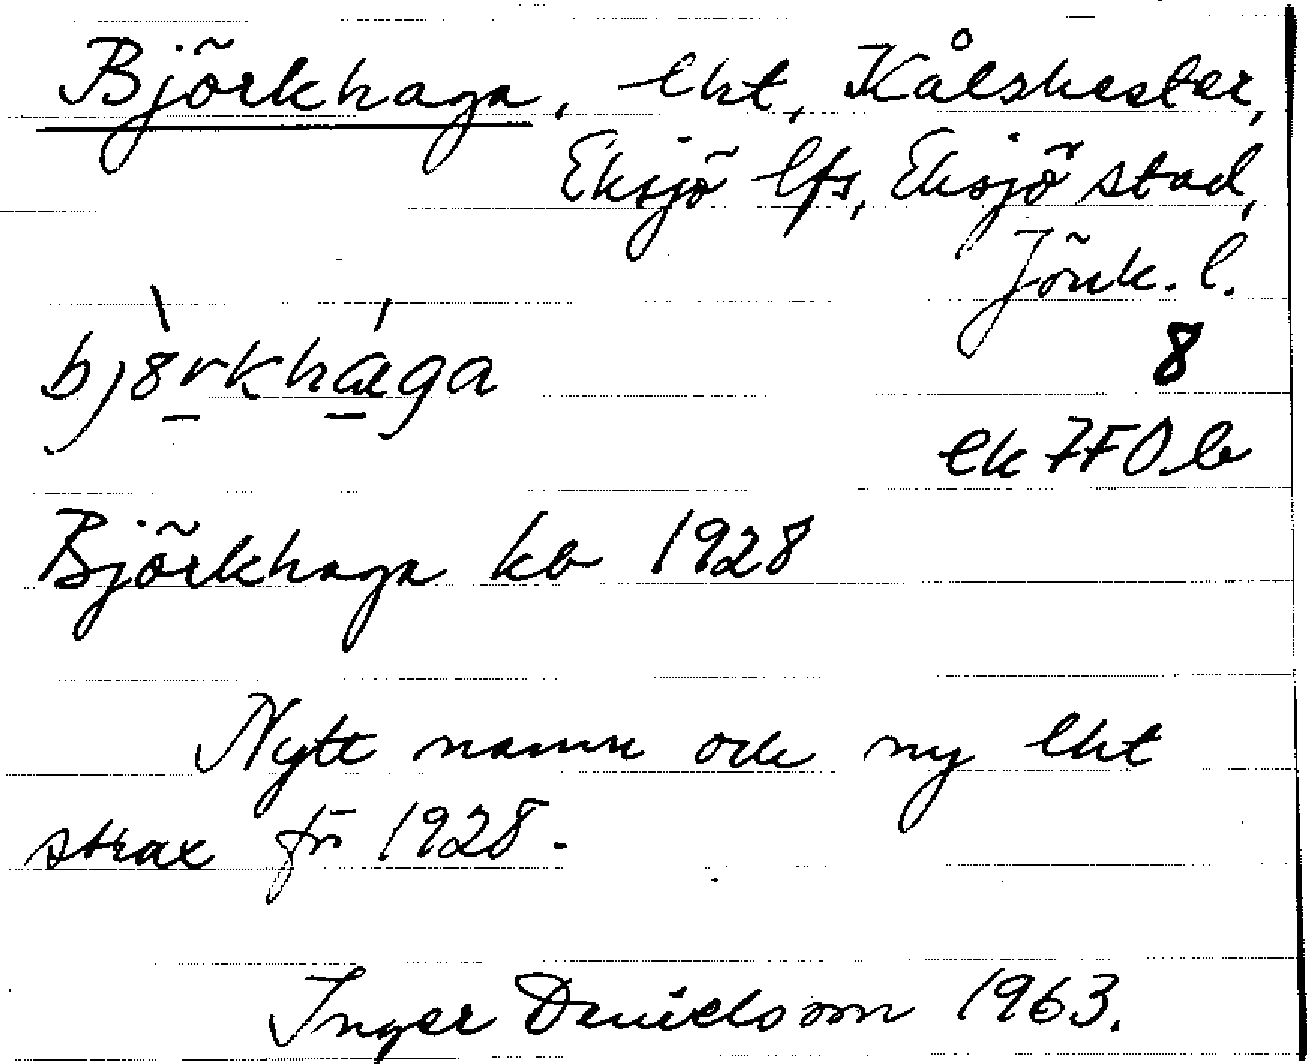 Björkhaga, lht, Kålshester,
Eksjö lfs, Eksjö stad,
Jönk. l.
bjȣ̀rkhága
8
ek 7F0b
Björkhaga kb 1928
Nytt namn och ny lht
strax fr 1928.
Inger Danielsson 1963.